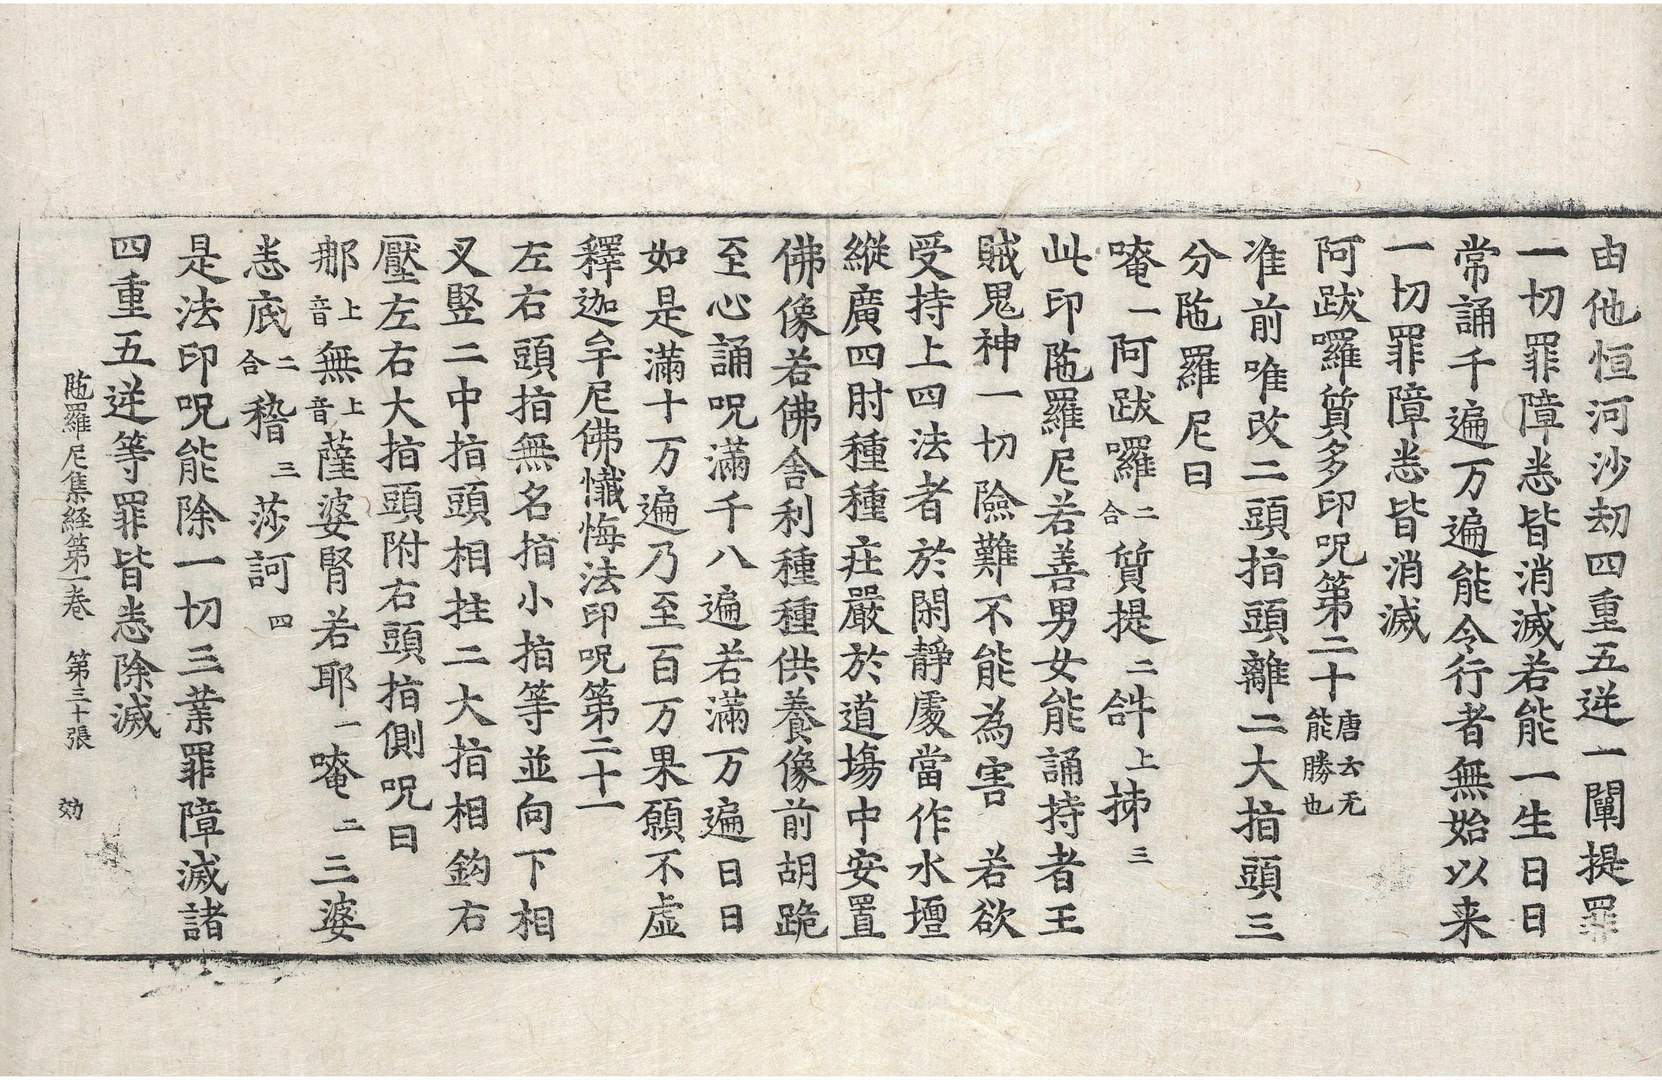 由他恒河沙劫四重五逆一闡提罪
一切罪障悉皆消滅若能一生日日
常誦千遍万遍能令行者無始以来
一切罪障悉皆消滅
阿跋囉質多印呪第二十唐云无能勝也
准前唯改二頭指頭離二大指頭三
分陁羅尼曰
唵一阿跋囉二合質提二𤙖上㧊三
此印陁羅尼若善男女能誦持者王
賊鬼神一切險難不能為害　若欲
受持上四法者於閑靜處當作水壇
縱廣四肘種種庄嚴於道場中安置
佛像若佛舍利種種供養像前胡跪
至心誦呪滿千八遍若滿万遍日日
如是滿十万遍乃至百万果願不虛
釋迦牟尼佛懺悔法印呪第二十一
左右頭指無名指小指等並向下相
叉竪二中指頭相拄二大指相鈎右
壓左右大指頭附右頭指側呪曰
那上音無上音薩婆腎若耶一唵二三婆
悉底二合㗨三莎訶四
是法印呪能除一切三業罪障滅諸
陁羅尼集経第一卷　第三十張　効
四重五逆等罪皆悉除滅